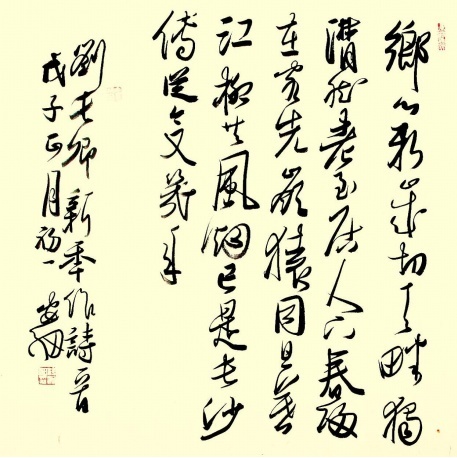 鄉心新歲切天畔獨
潸然老至居人下春歸
在客先嶺猿同旦暮
江柳共風烟已是長沙
傅從今又幾年
劉長卿新年作詩一首
戊子正月初一